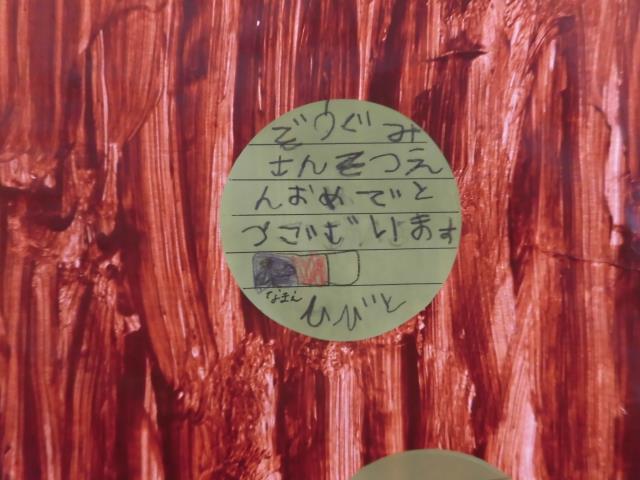 ぞうぐみ
さんそつえ
んおめでと
うございます
なまえ
ひびと